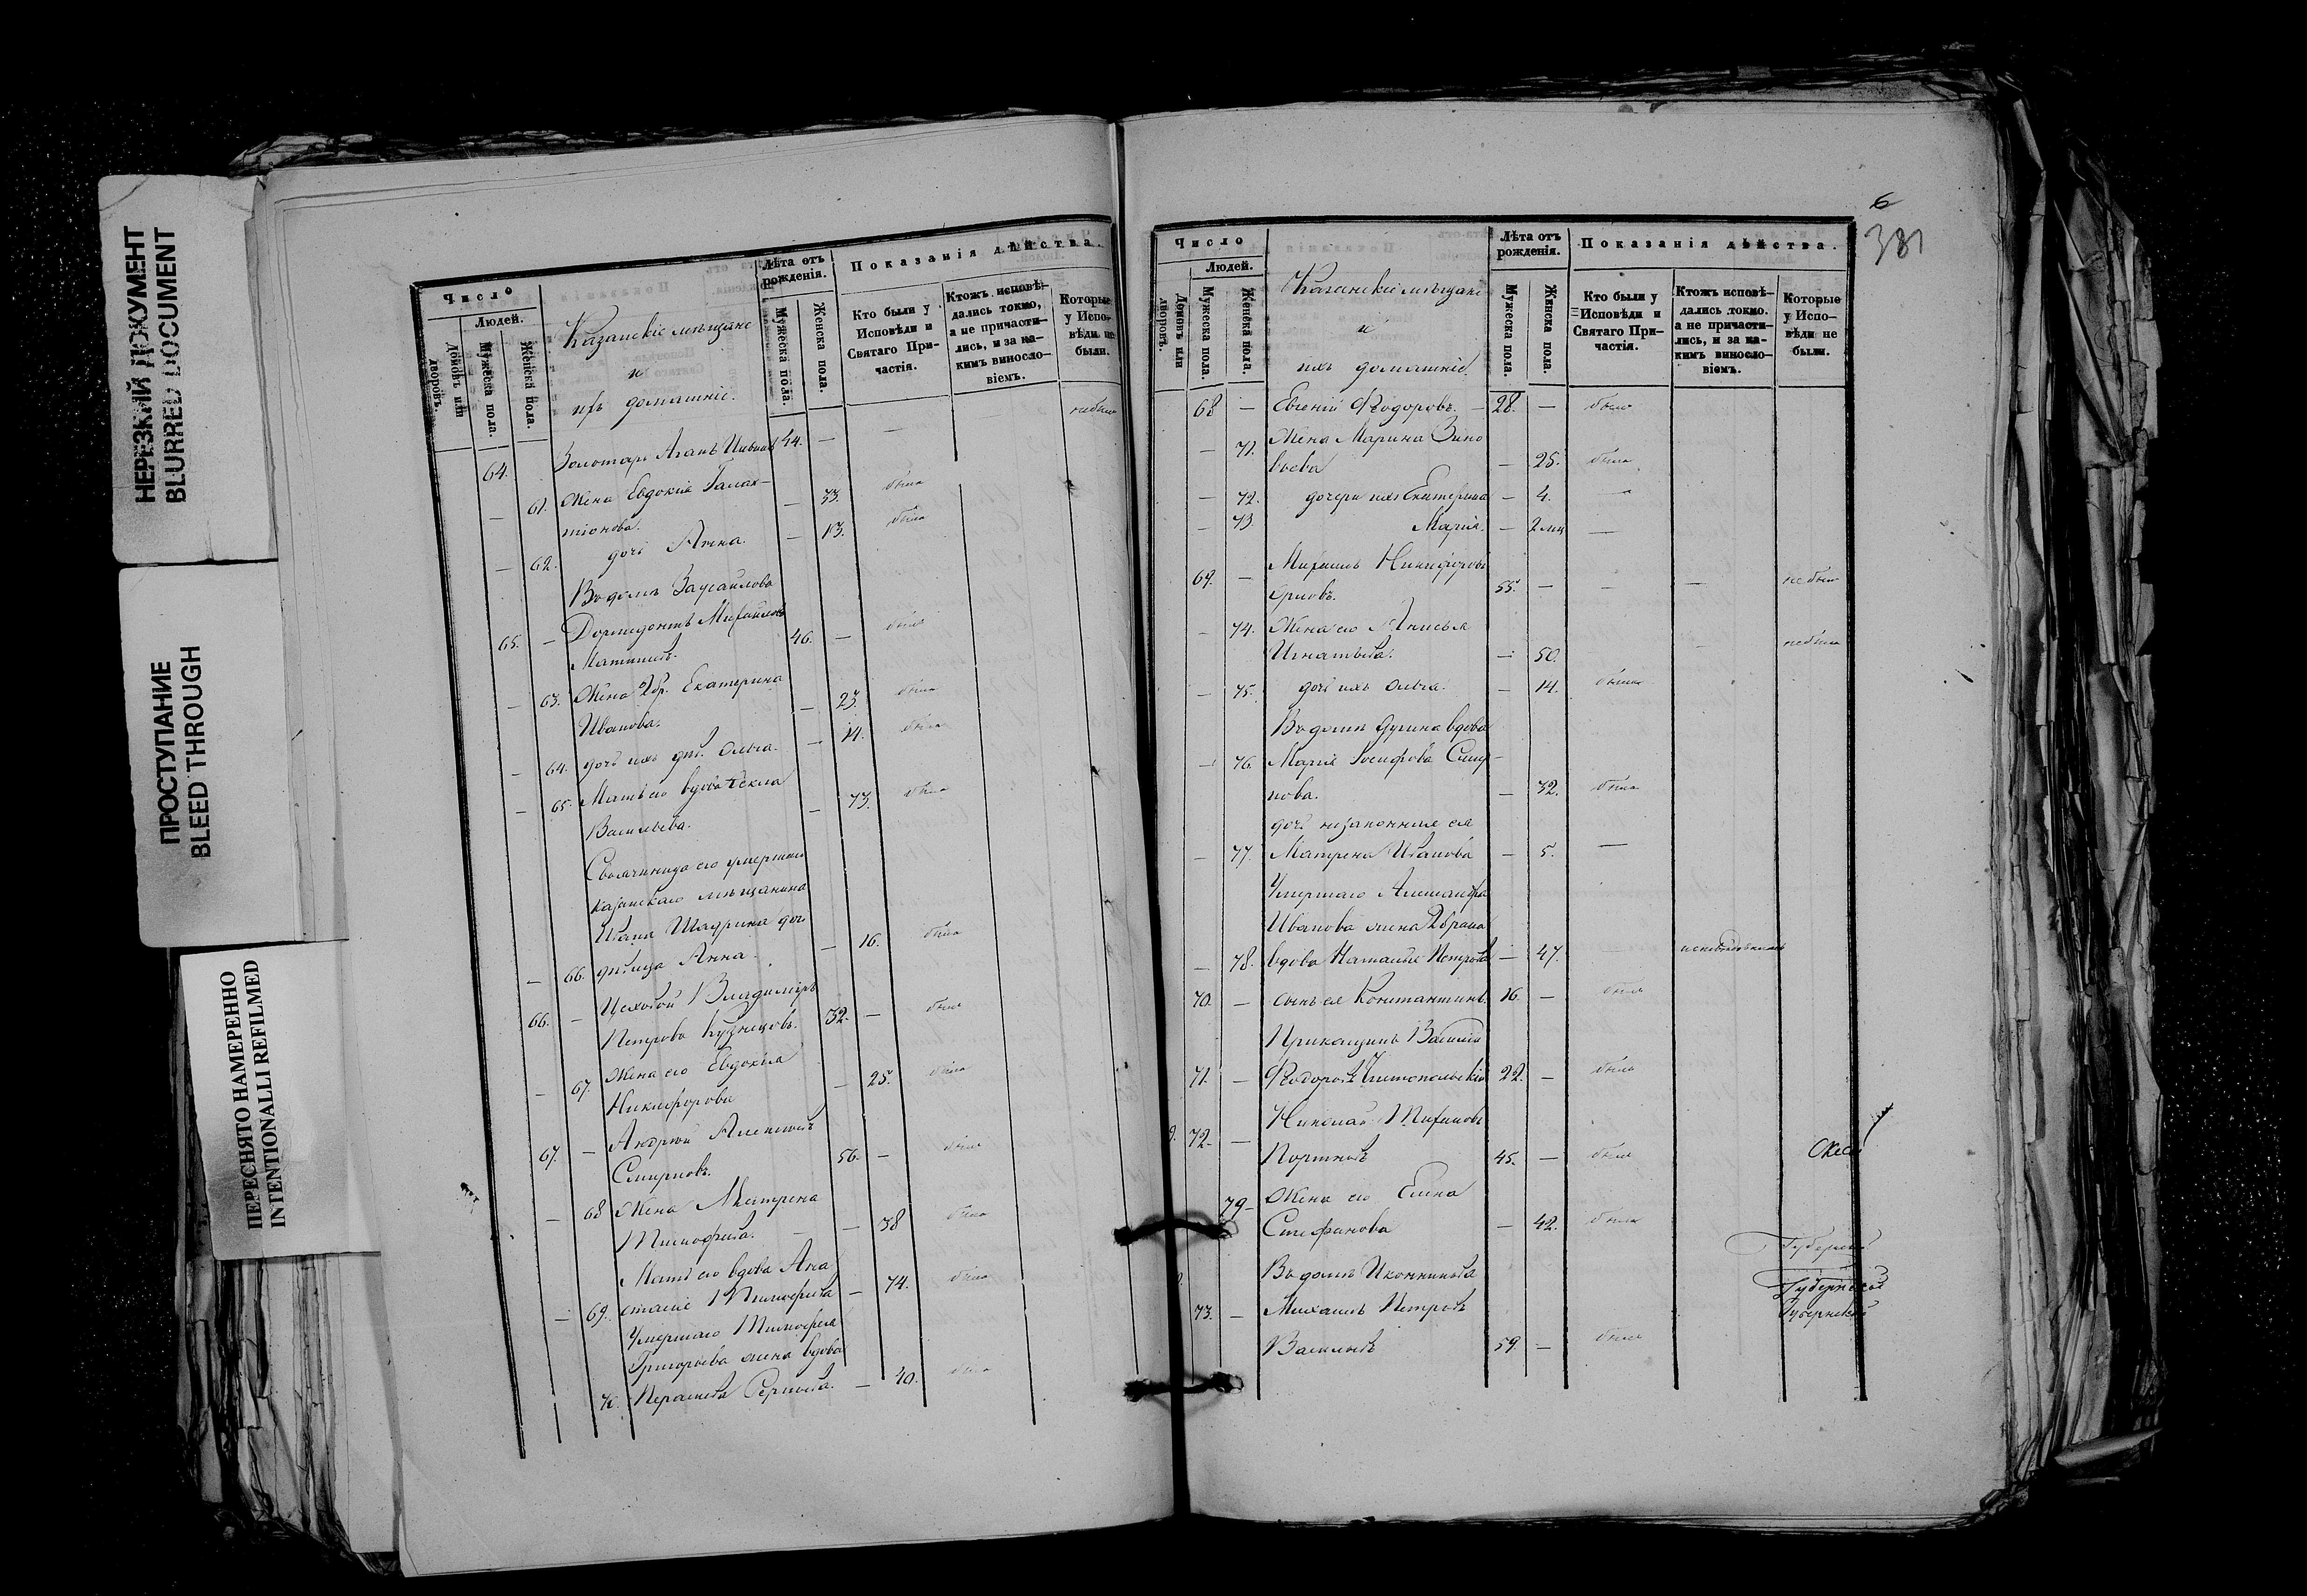 НЕРЕЗКИЙ ДОКУМЕНТ
BLURRED DOCUMENT
ПРОСТУПАНИЕ
BLEED THROUGH
ПЕРЕСНЯТО НАМЕРЕННО
INTENTIONALLI REFILMED
Число
Людей.
Домовъ или дворовъ.
Мужеска пола.
Женска пола.
Казанскіе мѣщане
и
ихъ домашніе.
Лѣта отъ рожденія.
Мужеска пола.
Женска пола.
Показанія дѣйства.
Кто были у Исповѣди и Святаго Причастія.
Ктожъ исповѣдались токмо, а не причастились, и за какимъ винословіемъ.
Которые у Исповѣди не были.
64. Золотарь 44. — — небылъ
— 61. Жена Евдокія Галак-
тіонова. — 33. была
— 62. дочь Анна. — 13. была
Въ домѣ
65. — Дормидонтъ Михайловъ
46. — былъ
— 63. Жена 2бр. Екатерина
Иванова. — 23. была
— 64. дочь ихъ дѣв. Ольга. — 14. была
— 65. Мать его вдова Ѳекла
Васильева. — 73. была
Своячиница его умершаго
казанскаго мѣщанина
Ивана Шадрина дочь
— 66. дѣвица Анна. — 16. была
66. — Цеховой Владиміръ
Петровъ Кузнецовъ. 32. — былъ
— 67. Жена его Евдокія
Никифорова — 25. была
67. — Андрей Алексѣевъ
Смирновъ. 56. — былъ
— 68 Жена Матрена
Тимофеева. — 38 была
Мать его вдова Ана
— 69. стасія Тимофеева — 74. была
Умершаго Тимофея
Григорьева жена вдова
70. Пелагея Сергеева. — 40. была
6
381
Число
Людей.
Домовъ или дворовъ.
Мужеска пола.
Женска пола.
Казанскіе мѣщане
и
ихъ домашніе.
Лѣта отъ рожденія.
Мужеска пола.
Женска пола.
Показанія дѣйства.
Кто были у Исповѣди и Святаго Причастія.
Ктожъ исповѣдались токмо. а не причастились, и за какимъ винословіемъ.
Которые у Исповѣди не были.
68 — Евгеній Ѳедоровъ. — 28. — былъ
— 71. Жена Марина Зино
вьева — 25. была
— 72. дочери ихъ Екатерина — 4. —
— 73 Марія. — 2 мц —
69. — Михаилъ Никифоровъ
55. — — — не былъ
— 74. Жена его Анисья
Игнатьева. — 50. — небыла
— 75. дочь ихъ Ольга. — 14. была
Въ домѣ вдова
— 76. Марія Іосифова
нова. — 32. была
дочь незаконная ея
— 77. Матрена Иванова — 5. —
Умершаго Александра
Иванова жена 2брака
— 78. вдова Наталья Петрова — 47. —
70. — сынъ ея Константинъ. 16. — былъ
Прикащикъ Василій
71. — Ѳедоровъ Чистопольскій 22. — былъ
Николай
72. — 45. — былъ
79 — Жена его Елена
Стефанова — 42. была
Въ домѣ
73. — Михаилъ Петровъ
Васильевъ 59. — былъ
Губернской
Губернской